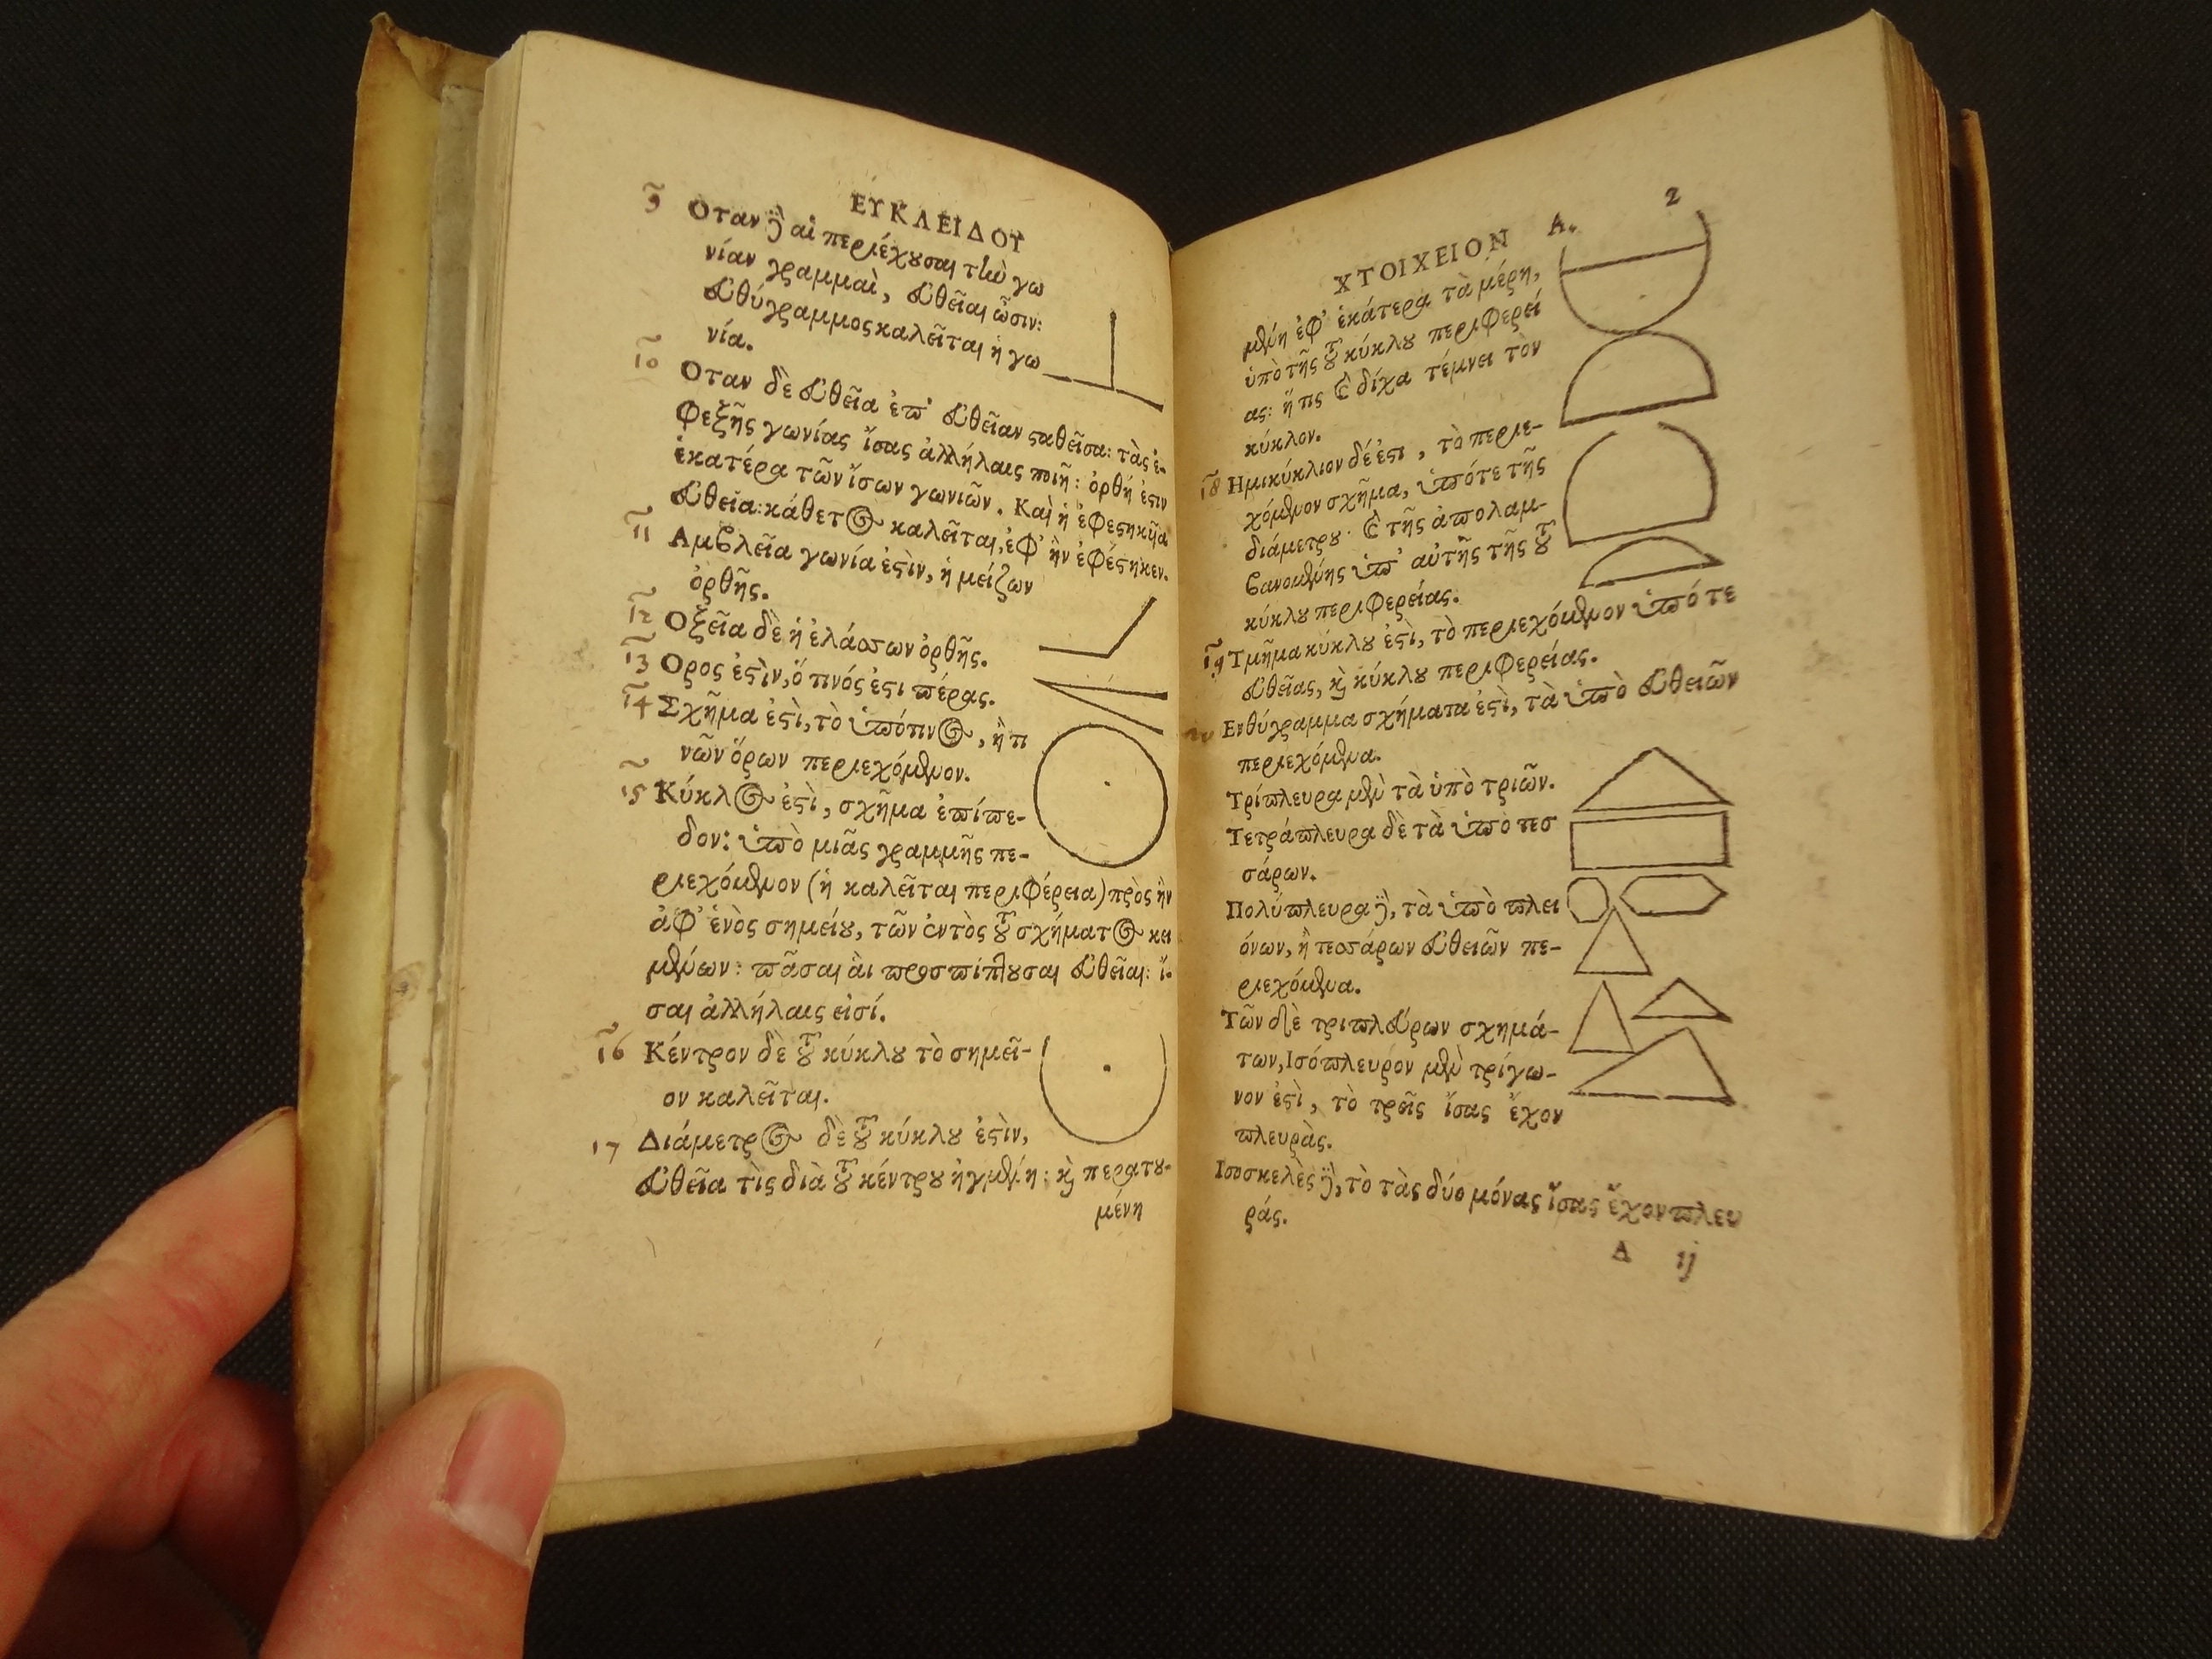 ΕΥΚΛΕΙΔΟΥ
9 Οταν δὲ αἱ περιέχουσαι τὴν γω
νίαν γραμμαὶ, εὐθεῖαι ὦσιν:
εὐθύγραμμος καλεῖται ἡ γω
νία.
10 Οταν δὲ εὐθεῖα ἐπ' εὐθεῖαν σταθεῖσα: τὰς ἐ-
φεξῆς γωνίας ἴσας ἀλλήλαις ποιῇ: ὀρθή ἐστιν
ἑκατέρα τῶν ἴσων γωνιῶν. Καὶ ἡ ἐφεστηκῖα
εὐθεῖα: κάθετος καλεῖται, ἐφ' ἣν ἐφέστηκεν.
11 Αμβλεῖα γωνία ἐστὶν, ἡ μείζων
ὀρθῆς.
12 Οξεῖα δὲ ἡ ἐλάσσων ὀρθῆς.
13 Ορος ἐστὶν, ὅ τινός ἐστι πέρας.
14 Σχῆμα ἐστὶ, τὸ ὑπό τινος, ἢ τι
νῶν ὅρων περιεχόμενον.
15 Κύκλος ἐστὶ, σχῆμα ἐπίπε-
δον: ὑπὸ μιᾶς γραμμῆς πε-
ριεχόμενον (ἡ καλεῖται περιφέρεια) πρὸς ἣν
ἀφ' ἑνὸς σημείου, τῶν ἐντὸς τοῦ σχήματος κει
μένων: πᾶσαι ἁι προσπίπτουσαι εὐθεῖαι: ἴ-
σαι ἀλλήλαις εἰσί.
16 Κέντρον δὲ τοῦ κύκλου τὸ σημεῖ-
ον καλεῖται.
17 Διάμετρος δὲ τοῦ κύκλου ἐστὶν,
εὐθεῖα τὶς διὰ τοῦ κέντρου ἠγμένη: καὶ περατου-
μένη
ΧΤΟΙΧΕΙΟΝ Α. 2
μένη ἐφ' ἑκάτερα τὰ μέρη,
ὑπὸ τῆς τοῦ κύκλου περιφερεί
ας: ἥτις καὶ δίχα τέμνει τὸν
κύκλον.
18 Ημικύκλιον δέ ἐστι, τὸ περιε-
χόμενον σχῆμα, ὑπό τε τῆς
διάμετρου. καὶ τῆς ἀπολαμ-
βανομένης ὑπ' αὐτῆς τῆς τοῦ
κύκλου περιφερείας.
19 Τμῆμα κύκλου ἐστὶ, τὸ περιεχόμενον ὑπό τε
εὐθείας, καὶ κύκλου περιφερείας.
20 Ευθύγραμμα σχήματα ἐστὶ, τὰ ὑπὸ εὐθειῶν
περιεχόμενα.
Τρίπλευρα μὲν τὰ ὑπὸ τριῶν.
Τετράπλευρα δὲ τὰ ὑπὸ τεσ
σάρων.
Πολύπλευρα δὲ, τὰ ὑπὸ πλει
όνων, ἢ τεσσάρων εὐθειῶν πε-
ριεχόμενα.
Τῶν δὲ τριπλεύρων σχημά-
των, Ισόπλευρόν μὲν τρίγω-
νον ἐστὶ, τὸ τρεῖς ἴσας ἔχον
πλευρὰς.
Ισοσκελὲς δὲ, τὸ τὰς δύο μόνας ἴσας ἔχον πλευ
ράς.
A ij